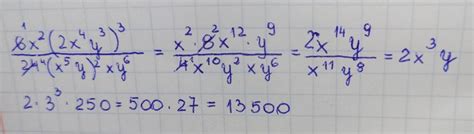 6x²(2x⁴y³)³ / 24(x⁵y)²xy⁶ = x²·8x¹²·y⁹ / 4x¹⁰y²xy⁶ = 2x¹⁴y⁹ / x¹¹y⁸ = 2x³y
2·3³·250=500·27=13500